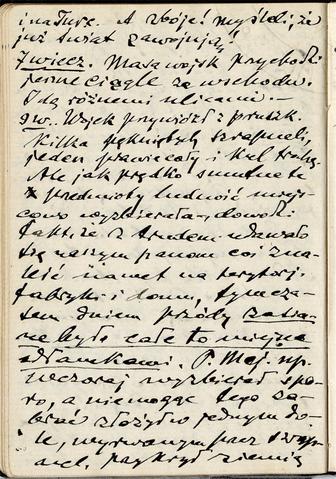 i na Turc. A zbóje! myśleli, że
już świat zawojują!
7 wiecz. Masa wojsk przychodzi
ciągle ze wschodu.
Idą różnemi ulicami.—
9 w. Wujek przywiózł z Pruszk.
kilka pękniętych szrapneli,
jeden prawie cały i kul trochę.
Ale jak prędko smutne te
przedmioty ludność miejs-
cowa wyzbierała, dowodzi
fakt, że z trudem udawało
się naszym panom coś zna-
leźć nawet na terytorj.
fabryki i domu, tymcza-
sem dniem przódy zasia-
ne było całe to miejsce
odłamkami. P. Maj. np.
wczoraj wyzbierał spo-
ro, a niemogąc tego za-
brać złożył w jednym do-
le, wyrwanym przez szrap-
nel, przykrył ziemią